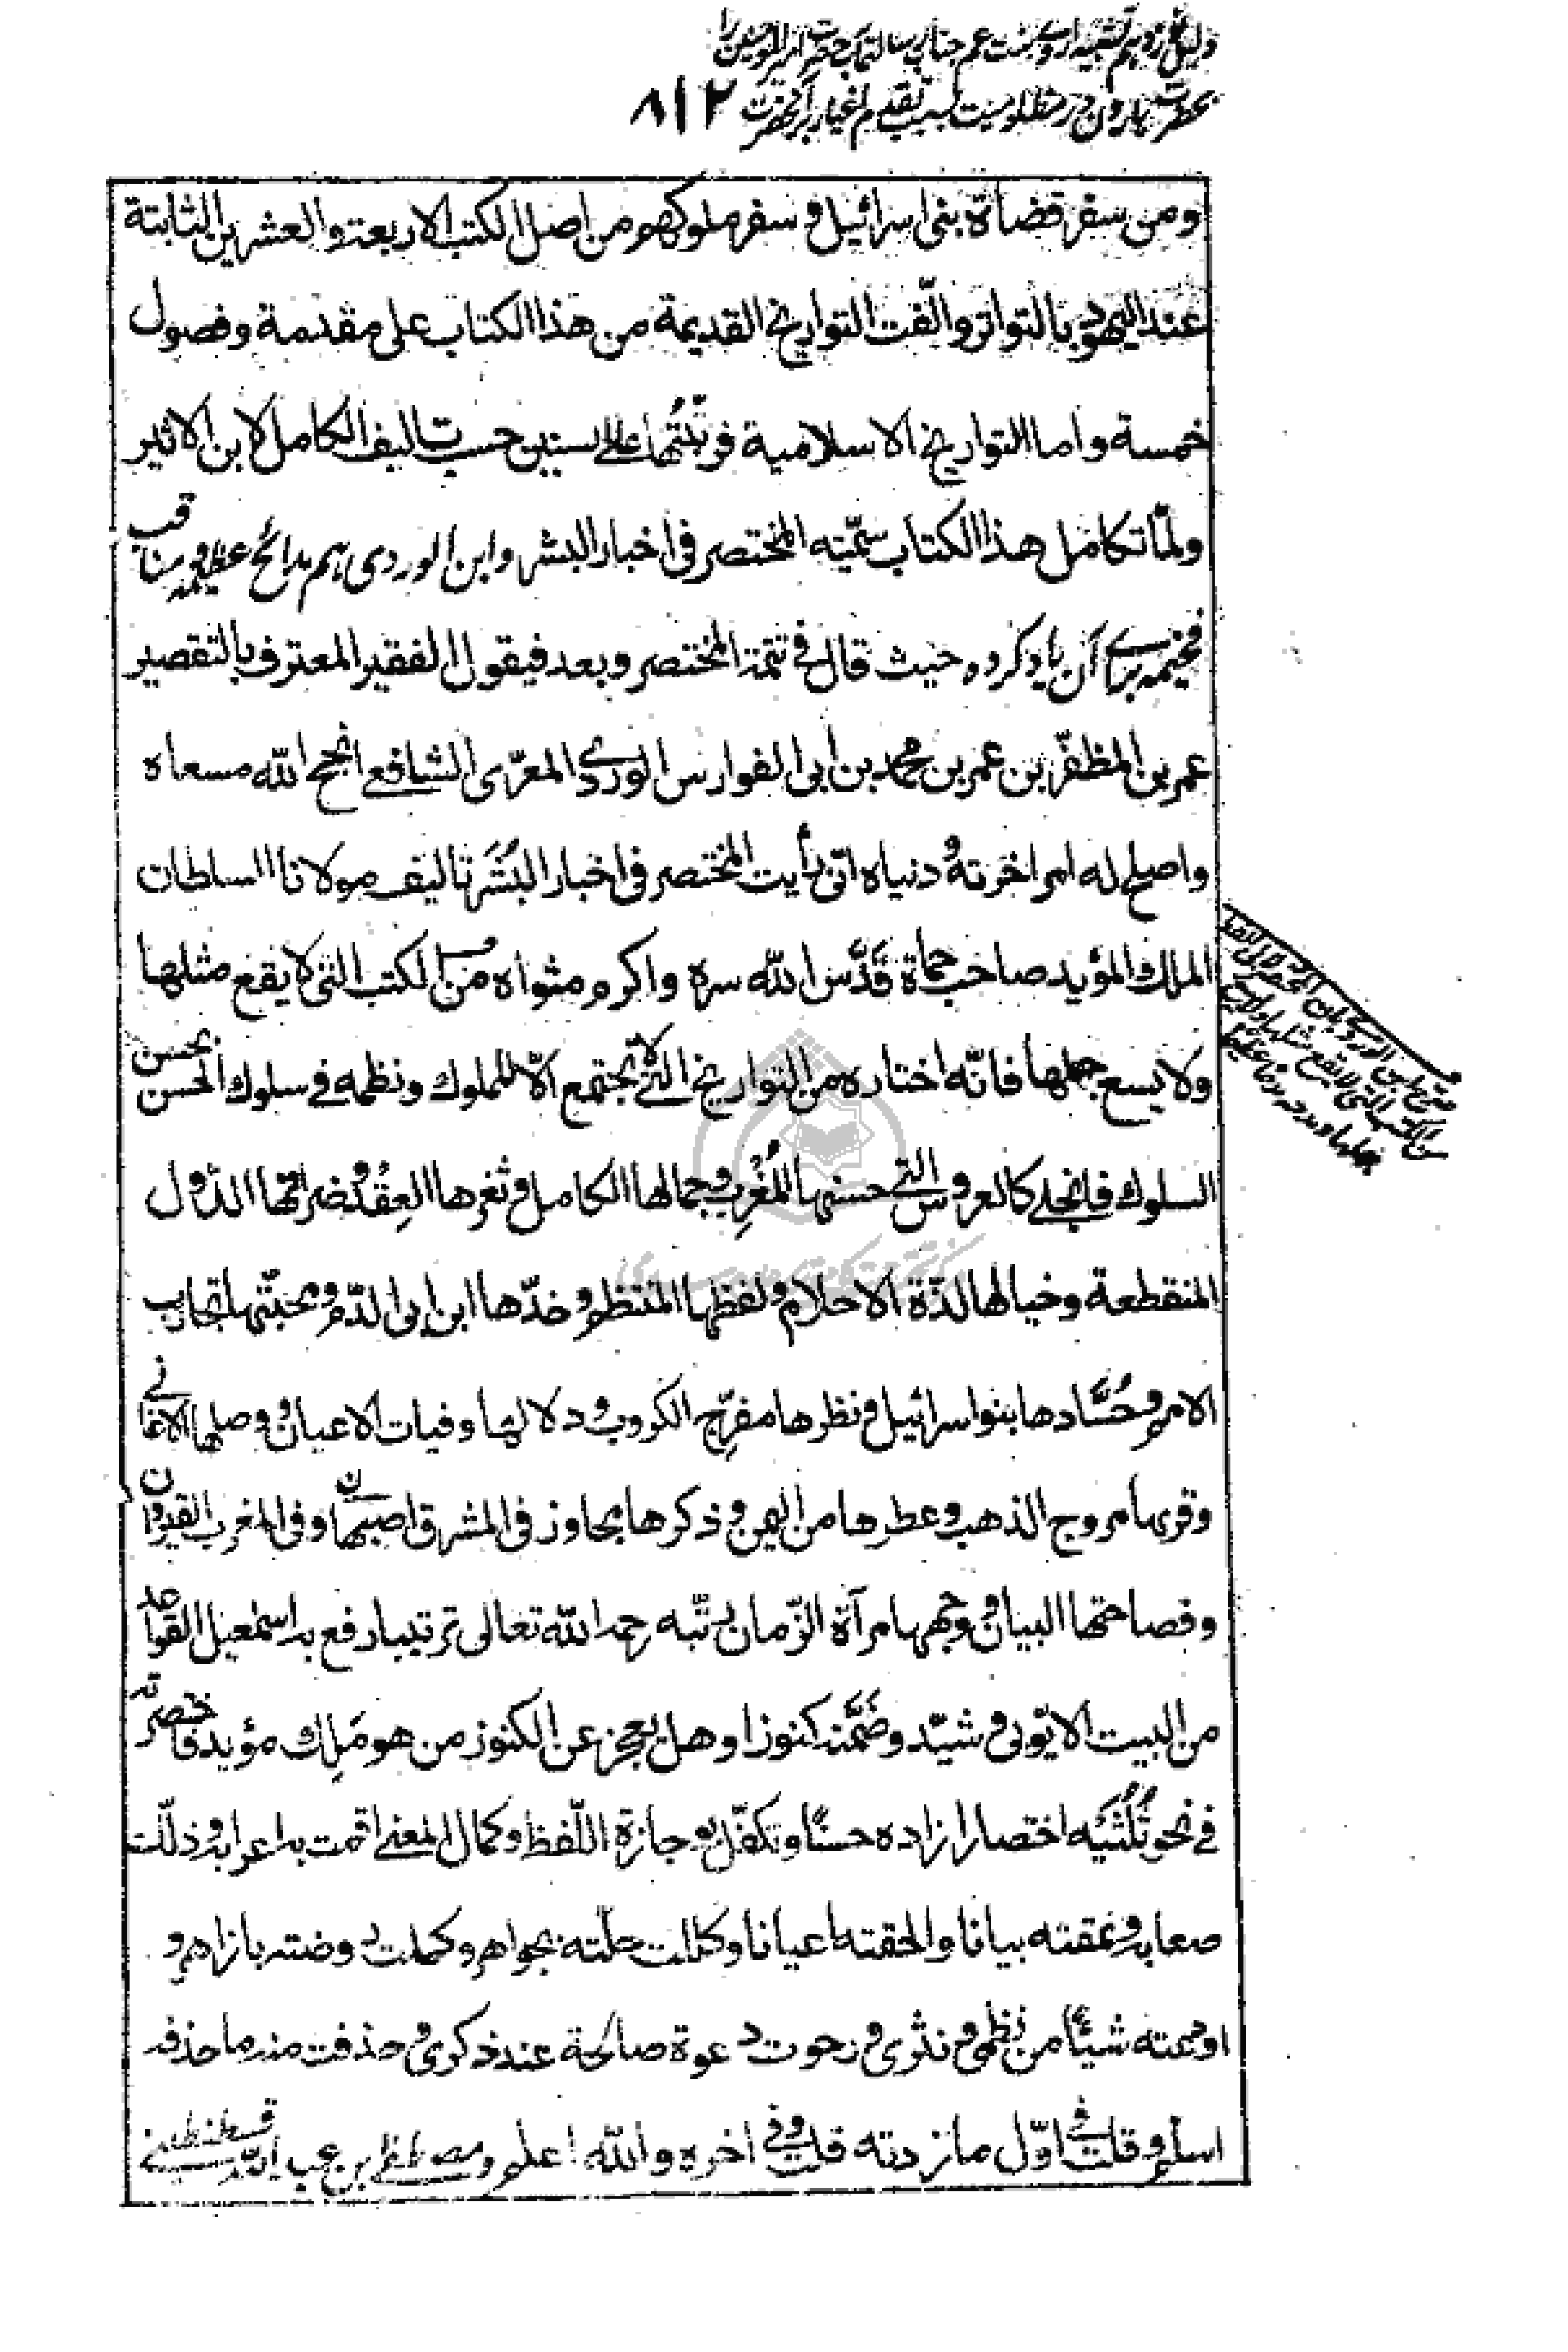 دلیل نوزدهم تشبیه اروی بنت عم جناب رسالتمآب حضرت امیر المومنین را
بحضرت هارون در مظلومیت بسبب تقدم اغیار بر آنحضرت ۸۱۲
ومن سفر قضاة بنی اسرائیل و سفر ملوکهم من اصل الکتب الاربعة و العشرین الثابتة
عند الیهود بالتواتر والّفت التواریخ القدیمة من هذا الکتاب علی مقدمة و فصول
خمسة واما التواریخ الاسلامیة فرتّبتُها علی السنین حسب تالیف الکامل لابن الاثیر
ولمّا تکامل هذا الکتاب سمّیته المختصر فی اخبار البشر وابن الوردی هم مدائح عظیمه و مناقب
فخیمه برای آن یاد کرده حیث قال فی تتمة المختصر وبعد فیقول الفقیر المعترف بالتقصیر
عمر بن المظفّر بن عمر بن محمد بن ابی الفوارس الوردی المعرّی الشافعی انجح الله مسعاه
واصلح له امر اخرته و دنیاه انّی رأیت المختصر فی اخبار البَشَر تالیف مولانا السلطان
الملک المؤید صاحب حماة قَدّس الله سره واکرم مثواه من الکتب التی لا یقع مثلها
ولا یسع جهلها فانّه اختاره من التواریخ التی لا تجتمع الّا للملوک ونظمه فی سلوک الحسن بحسن
السلوک فانجلی کالعروس التی حسنها المُغْرِب وجمالها الکامل و ثغرها العِقْد و ضراتها الدُّول
المنقطعة وخیالها لذّة الاحلام و لفظها المنتظم و خدّها ابن ابی الدّم و محبّتها تجارب
الامم و حُسّادها بنو اسرائیل و نظرها مفرّج الکروب و دلالها وفیات الاعیان و وصلها الاغانی
وقربها مروج الذهب و عطرها من الیمن و ذکرها یجاوز فی المشرق اصبهان وفی المغرب القیروان
وفصاحتها البیان و وجهها مرآة الزّمان رتّبه رحمه الله تعالی ترتیبا رفع به اسمعیل القواعد
من البیت الایّوبی و شیّد وضَمَّنه کنوزا وهل یعجز عن الکنوز من هو مَلِک مؤید فاختصرته
فی نحو ثُلُثَیْه اختصارا زاده حسنًا وتکفّل بوجازة اللّفظ وکمال المعنی اقمت به اعرابه و ذلّلت
صعابه و نمقته بیانا والحقته اعیانا وکللت حلّته بجواهر وکملت روضته بازاهر و
اودعته شیئًا من نظمی و نثری و رجوت دعوة صالحة عند ذکری و حذفت منه ما حذفه
اسلم و قلت فی اوّل ما زدته قلت وفی اخره والله اعلم و مصطفی بن عبد الله قسطنطینی
من الکتب التی لا یقع مثلها ولا یسع